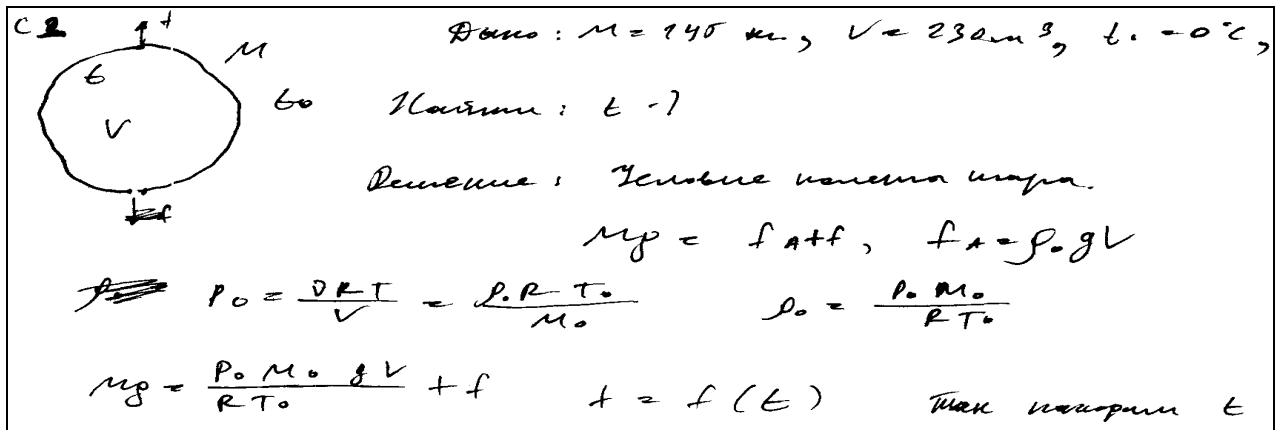 С2 f M Дано: M = 145 кг, V = 230 м³, t₀ = 0°C,
t V t₀ Найти: t - ?
Решение: Условие полета шара.
Mg = f_A + f, f_A = ρ₀gV
P₀ = νRT/V = ρ₀RT₀/M₀ ρ₀ = P₀M₀/RT₀
Mg = P₀M₀gV/RT₀ + f f = f(t) Так находим t